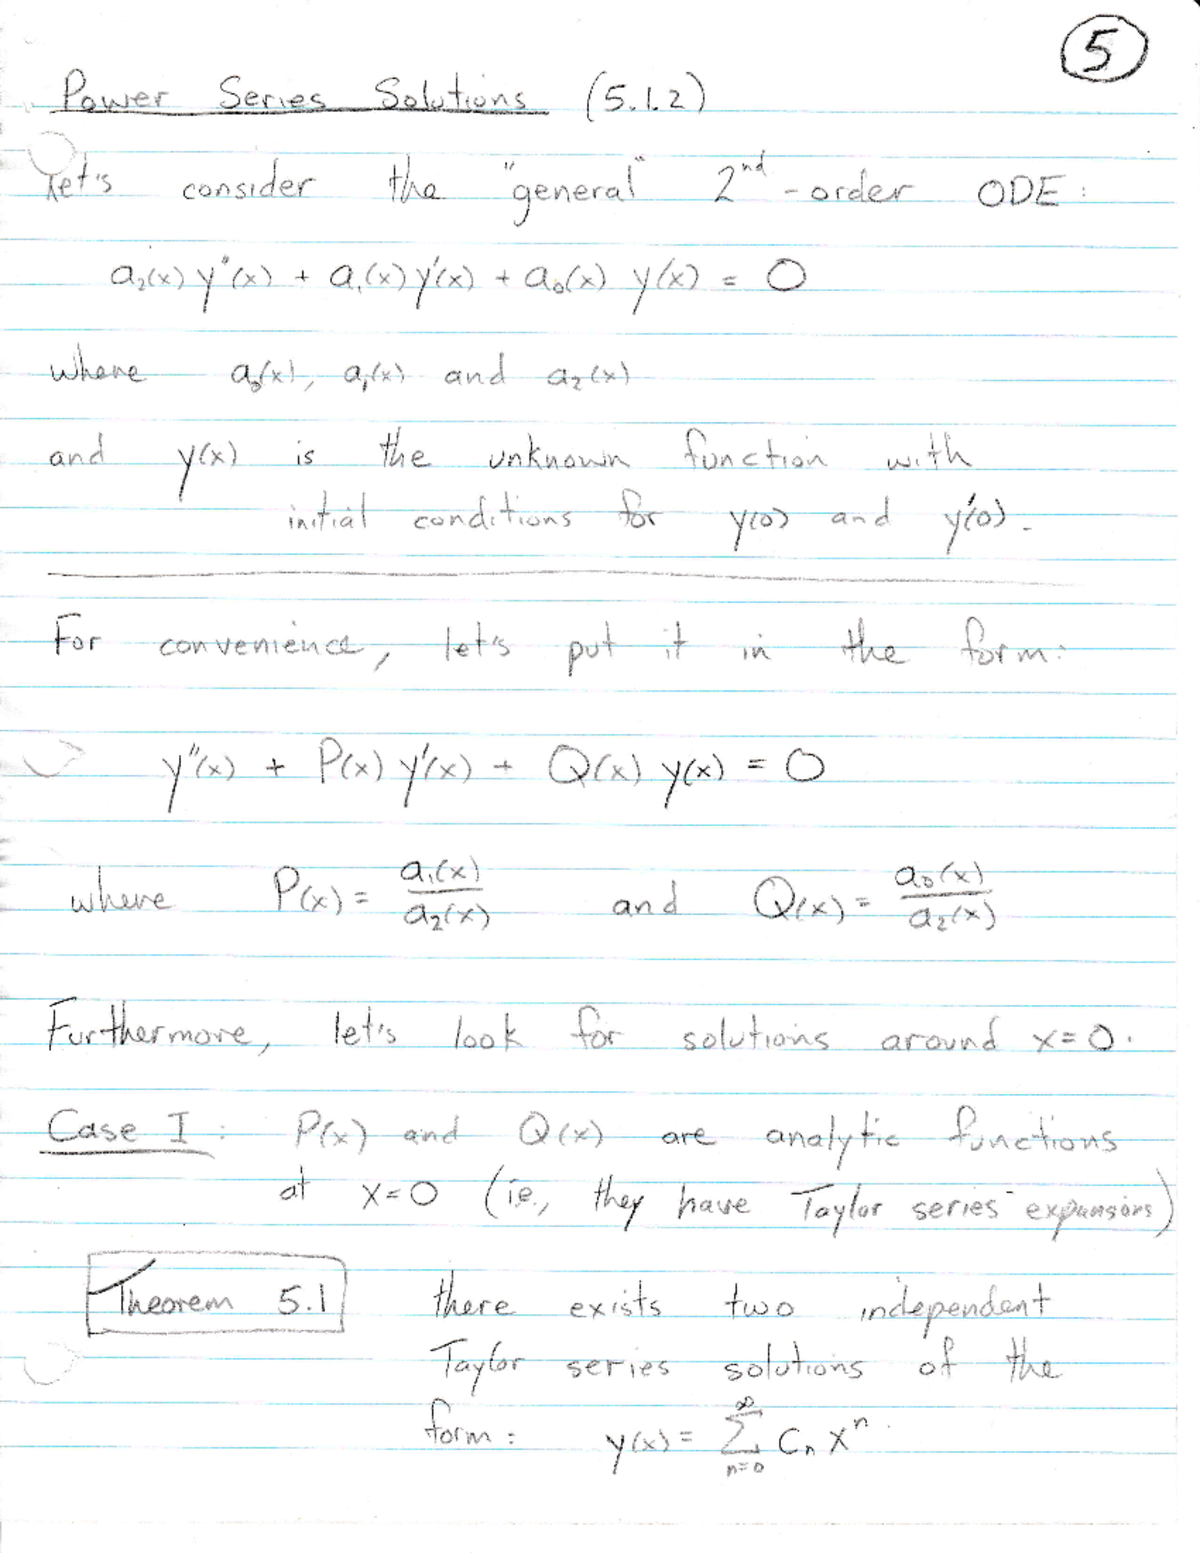 5
Power Series Solutions (5.1.2)
Let's consider the "general" 2nd-order ODE:
a₂(x) y''(x) + a₁(x) y'(x) + a₀(x) y(x) = 0
where a₀(x), a₁(x) and a₂(x)
and y(x) is the unknown function with
initial conditions for y(0) and y'(0).
For convenience, let's put it in the form:
y''(x) + P(x) y'(x) + Q(x) y(x) = 0
where P(x) = a₁(x)/a₂(x) and Q(x) = a₀(x)/a₂(x)
Furthermore, let's look for solutions around x=0.
Case I: P(x) and Q(x) are analytic functions
at x=0 (ie., they have Taylor series expansions)
Theorem 5.1 there exists two independent
Taylor series solutions of the
form: y(x) = ∑_{n=0}^{∞} Cₙ xⁿ.